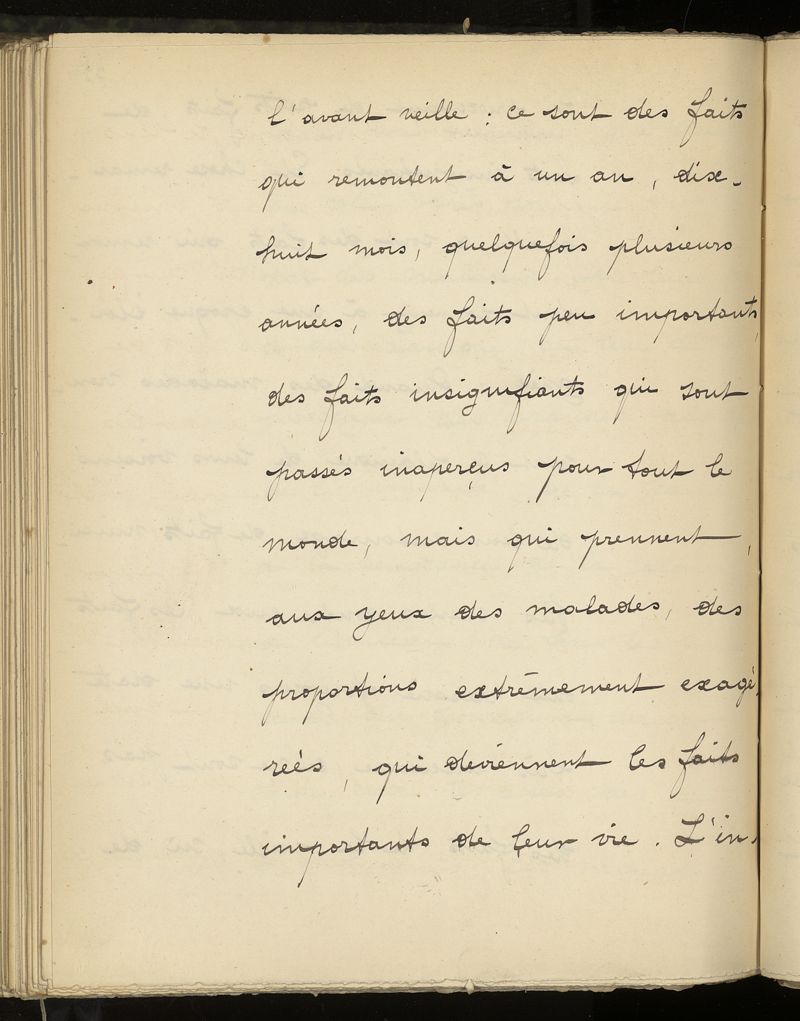 l'avant veille : ce sont des faits
qui remontent à un an, dix-
huit mois, quelquefois plusieurs
années, des faits peu importants,
des faits insignifiants qui sont
passés inaperçus pour tout le
monde, mais qui prennent,
aux yeux des malades, des
proportions extrêmement exagé-
rées, qui deviennent les faits
importants de leur vie. L'in-